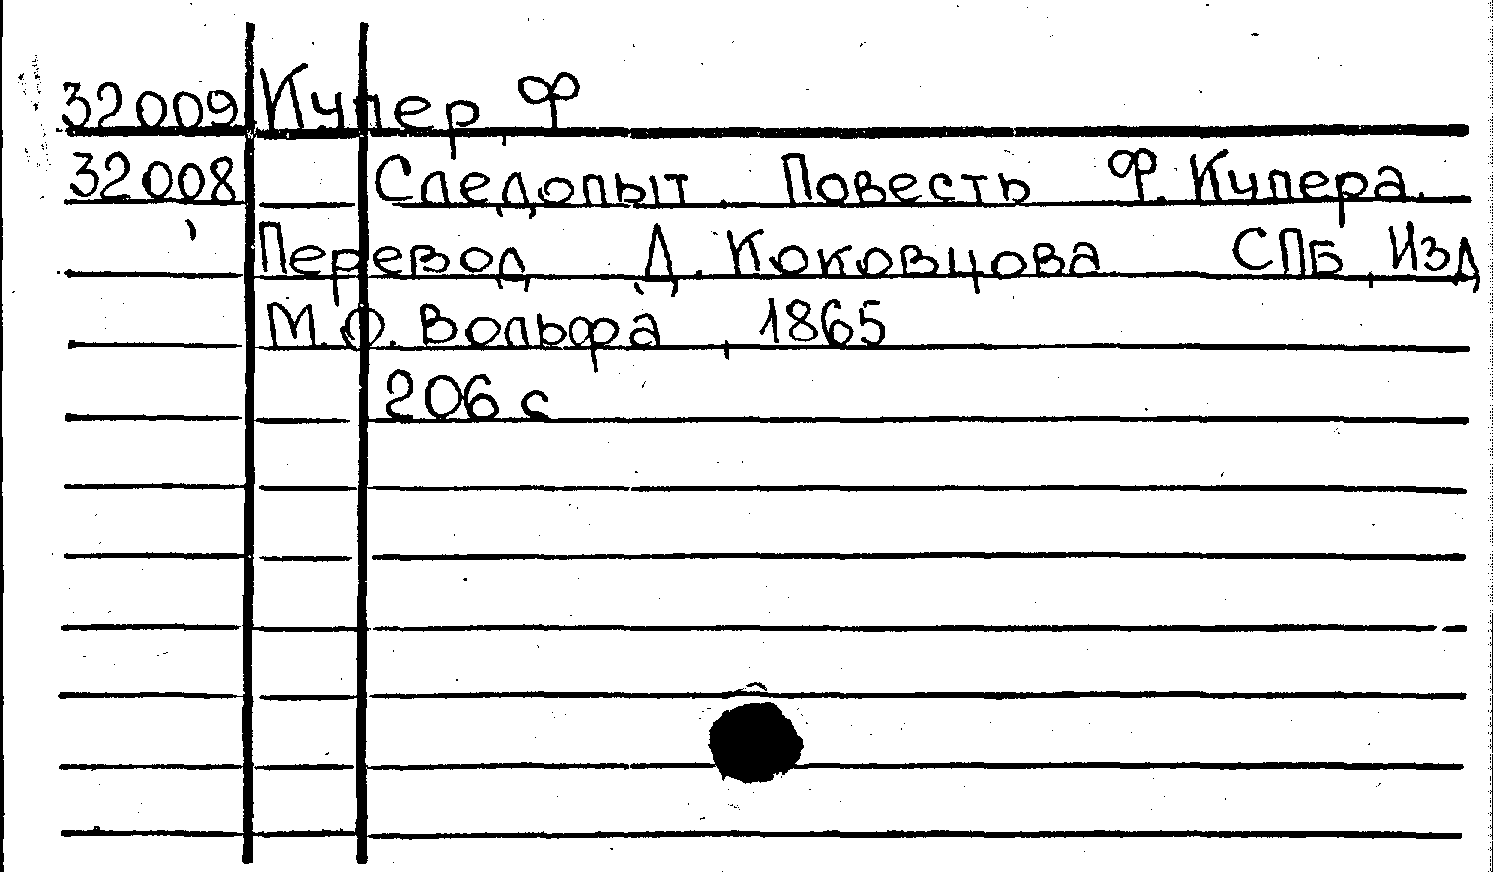 32009 Купер, Ф
32008 Следопыт. Повесть Ф. Купера.
Перевод Д. Коковцова СПБ, Изд
М.О. Вольфа, 1865
206 с